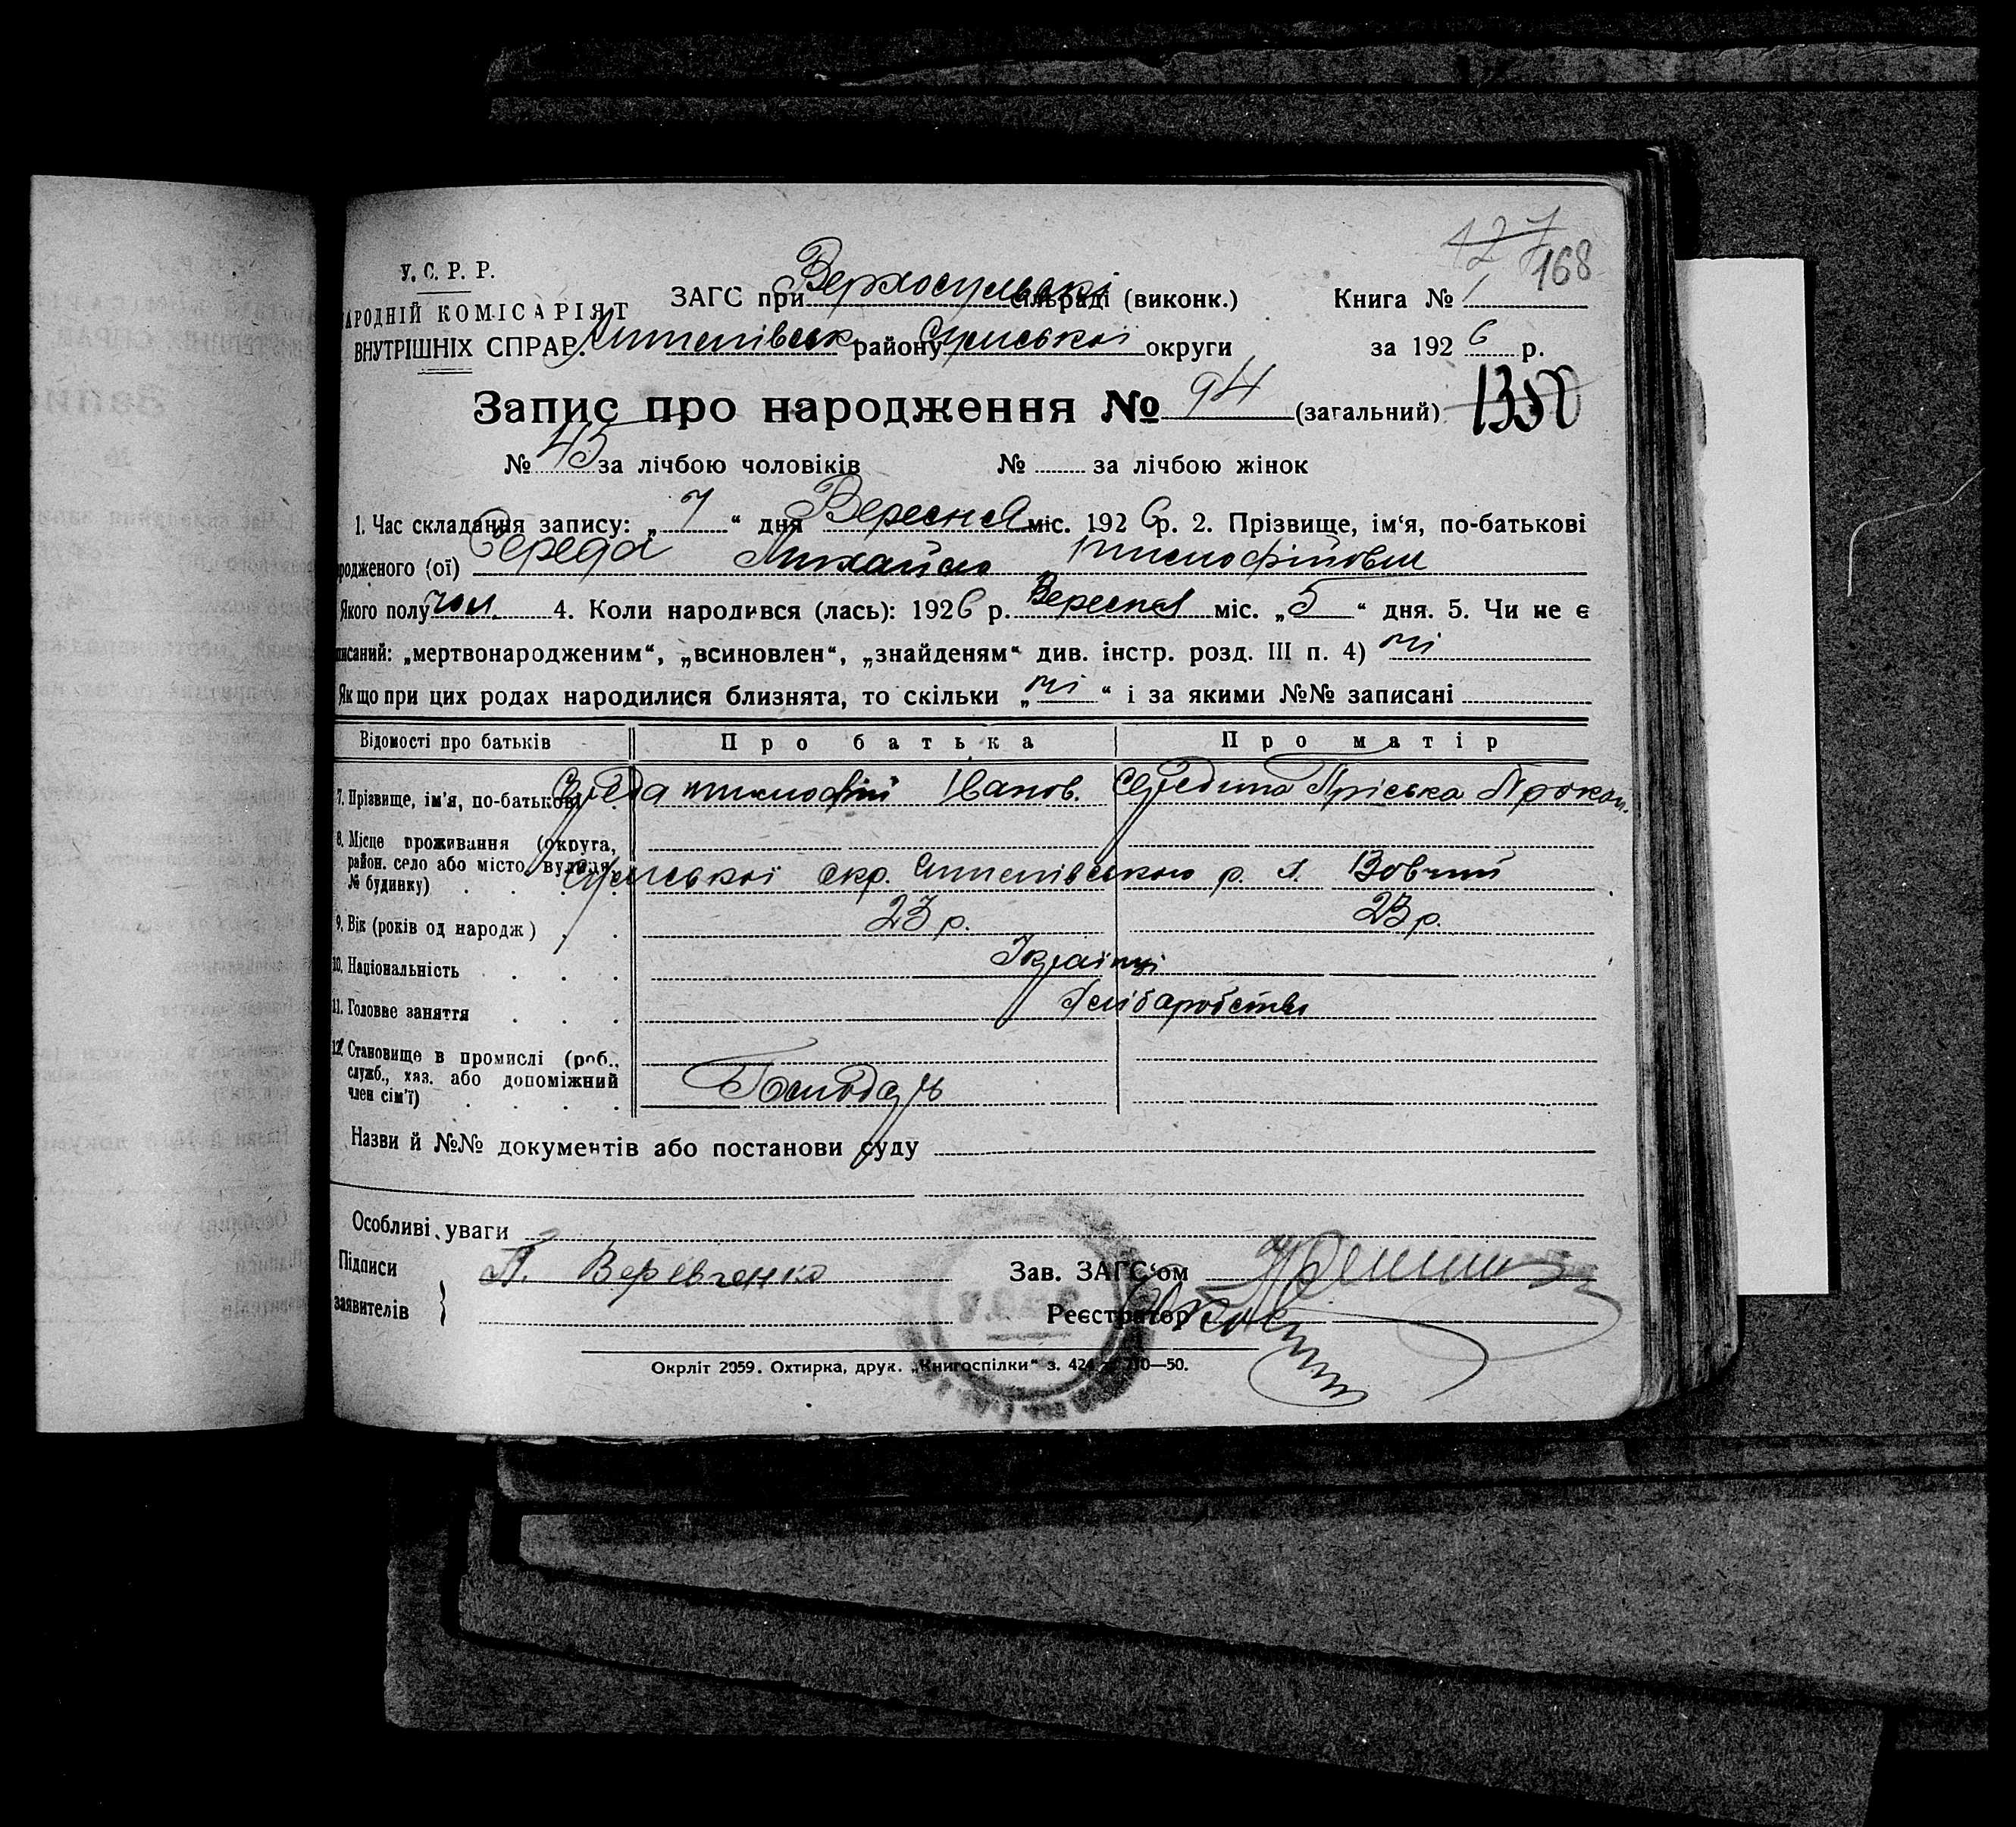 127
168
У. С. Р. Р.
НАРОДНІЙ КОМІСАРІЯТ
ВНУТРІШНІХ СПРАВ.
ЗАГС при Верхосульскі сільраді (виконк.) Книга № 1
Штепівськ району Сумської округи за 1926 р.
Запис про народження № 94 (загальний)
№ 45 за лічбою чоловіків № за лічбою жінок
1. Час складання запису: „7“ дня Вересня міс. 1926 р. 2. Прізвище, ім‘я, по-батькові
родженого (ої) Середа Михайло Тимофійович
Якого полу чол. 4. Коли народився (лась): 1926 р. Вересня міс. „5“ дня. 5. Чи не є
писаний: „мертвонародженим“, „всиновлен“, „знайденям“ див. інстр. розд. III п. 4) ні
Якщо при цих родах народилися близнята, то скільки „ні“ і за якими №№ записані
Відомості про батьків Про батька Про матір
7. Прізвище, ім'я, по-батькові Середа Тимофій Іванов. Середина Пріська Прокоп.
8. Місце проживання (округа,
район. село або місто, вулиця,
№ будинку) Сумської окр. Штепівського р. х. Вовчий
9. Вік (років од народж) 23 р. 23 р.
10. Національність Українці
11. Головне заняття Хліборобство
12. Становище в промислі (роб.,
служб., хаз. або допоміжний
член сім'ї) Господарь
Назви й №№ документів або постанови суду
Особливі уваги
Підписи
заявителів } Веревченко
Зав. ЗАГС‘ом
Реєстратор
Окрліт 2059. Охтирка, друк. „Книгоспілки“ з. 424